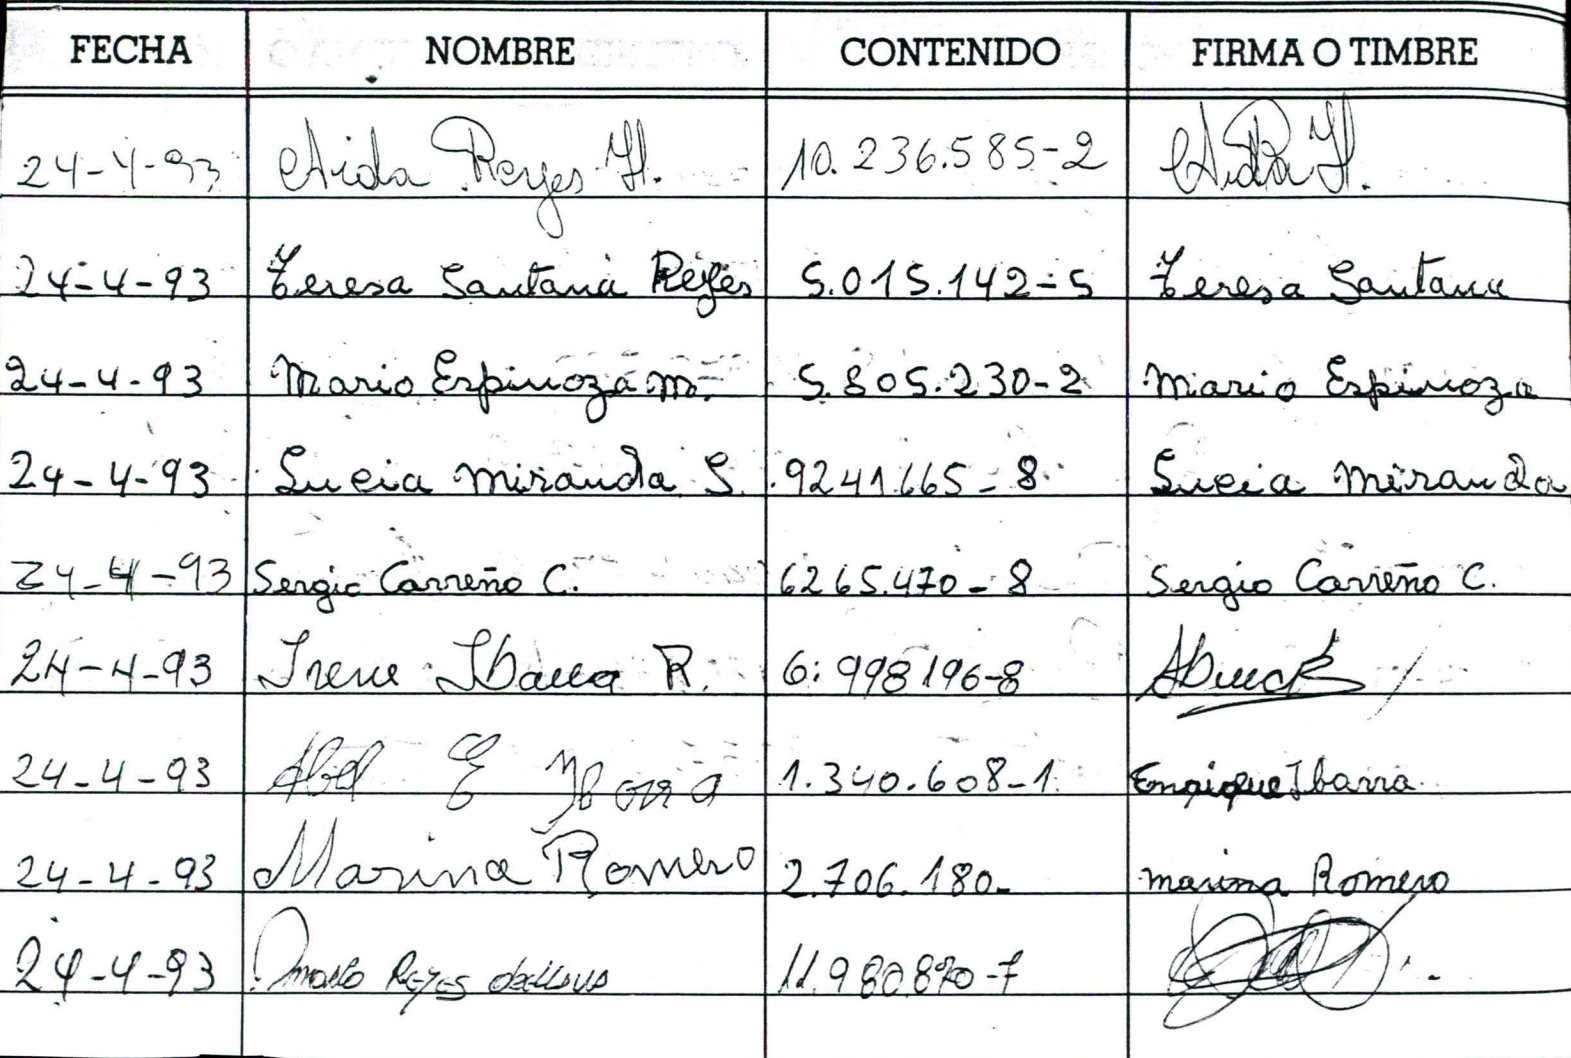 FECHA NOMBRE CONTENIDO FIRMA O TIMBRE
24-4-93 Aida Reyes H. 10.236.585-2 Aida H.
24-4-93 Teresa Santana Reyes 5.015.142-5 Teresa Santana
24-4-93 Mario Espinoza M. 5.805.230-2 Mario Espinoza
24-4-93 Lucia Miranda S. 9241.665-8 Lucia Miranda
24-4-93 Sergio Carreño C. 6265.470-8 Sergio Carreño C.
24-4-93 Irene Ibarra R. 6:998196-8
24-4-93 Abel E Ibarra 1.340.608-1 Enrique Ibarra
24-4-93 Marina Romero 2.706.180- Marina Romero
24-4-93 Reyes 11.980.870-7